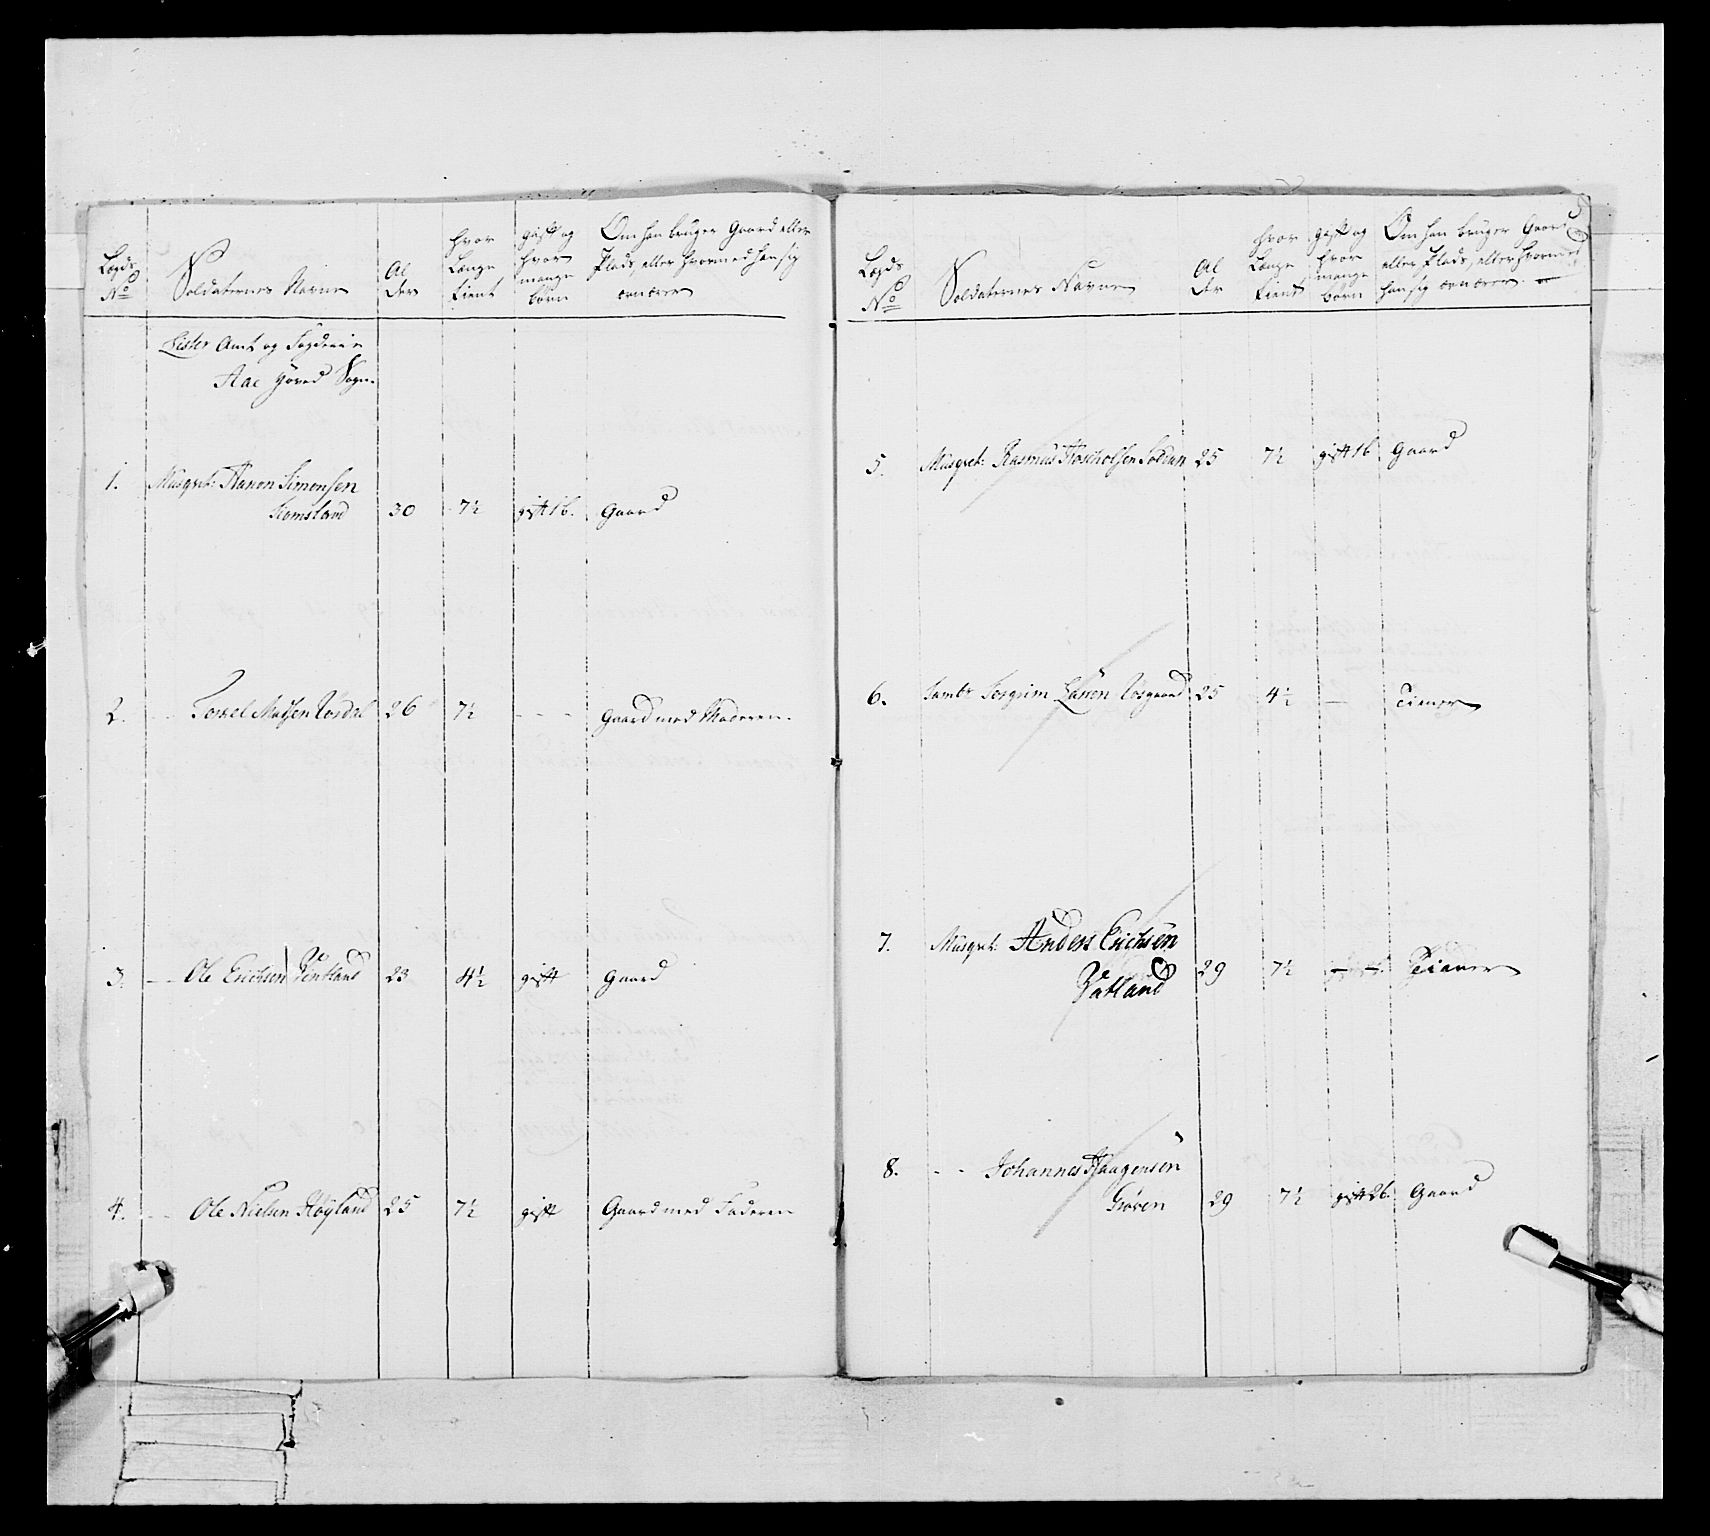 Lægds No
Soldaternes Navne
Al der
hvor Længe tient
gift og hvor mange børn
Om han bruger Gaard eller Plads, eller hvormed han sig ernærer
Lister Amt og Fogderie
Aae Sogn.
1. Musqvet: Aanon Simonsen
Stomsland 30 7½ gift 1 b. Gaard
2. - - Torkel Madsen 26 7½ - - - Gaard med Moderen.
3. - - Ole Erichsen Ventland 23 4½ gift Gaard
4. - - Ole Nielsen Høyland 25 7½ gift Gaard med Faderen
Lægds No
Soldaternes Navne
Al der
hvor Længe tient
gift og hvor mange børn
Om han bruger Gaard eller Plads, eller hvormed han sig ernærer
5. Musqvet: Rasmus 25 7½ gift 1 b. Gaard
6. Tamb: Torgrim 25 4½ — Tiener
7. Musqvet: Anders Erichsen
Vatland 29 7½ — — Tiener
8. - - Johannes Haagensen
29 7½ gift 2 b. Gaard